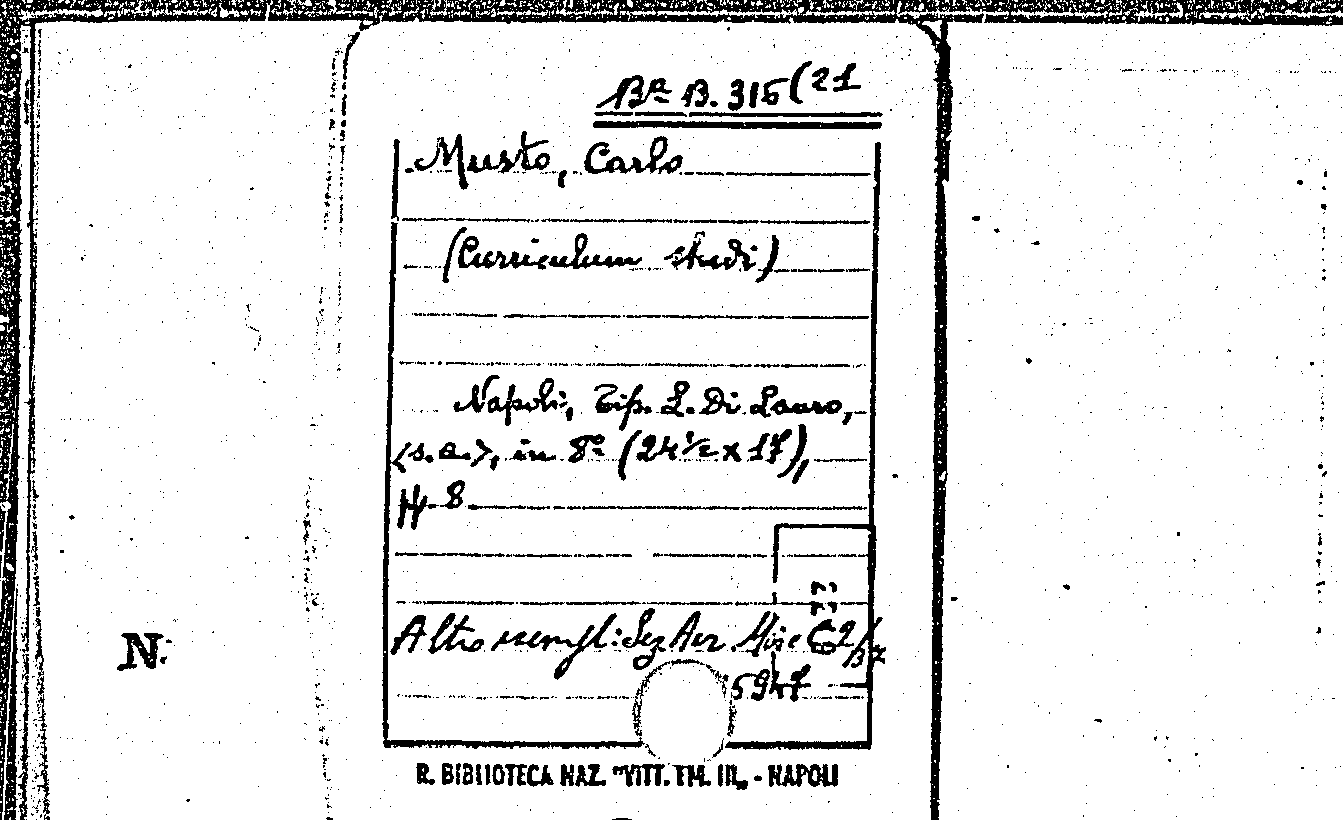 Bª B. 315(21
Musto, Carlo
(Curriculum studi)
Napoli, Tip. L. Di Lauro,
<s.a.>, in 8º (24½ x 17),
pp. 8
Altro esempl: Sez Aver Misc
5947
N.
R. BIBLIOTECA NAZ. "VITT. EM. III„ - NAPOLI